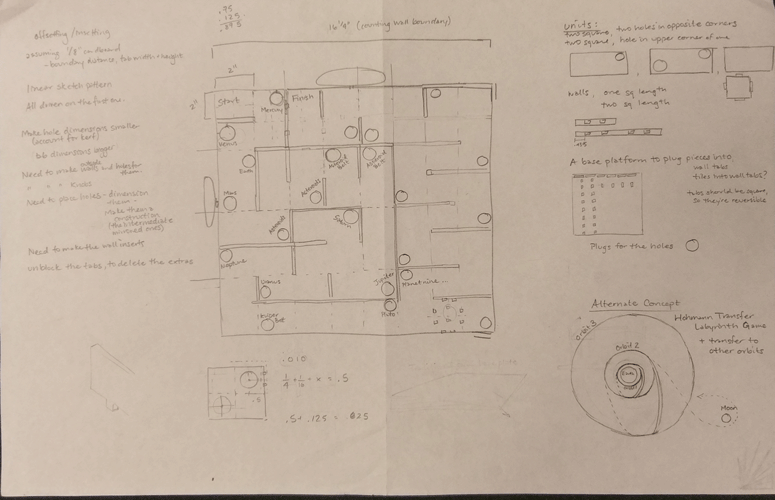 .75
.125
.875
16 1/4" (counting wall boundary)
offsetting / insetting
assuming 1/8" inboard
- boundary distance, tab width + height
linear sketch pattern
All drawn on the first one.
Make hole dimensions smaller
(account for kerf)
tab dimensions bigger
Need to make walls and tabs for
them
Knobs
Need to place holes - dimension
them
Make them a
construction
Need to make the wall inserts
unblock the tabs, to delete the extras
2"
2"
Start
Mercury
Finish
Venus
Earth
Asteroid
Belt
Asteroid
Belt
Mars
Asteroids
Asteroids
Saturn
Neptune
Uranus
Kuiper
Belt
Pluto
Planet nine...
.010
.5
1/4 + 1/16 + x = .5
.5 + .125 = .625
units:
two square, two holes in opposite corners
two square, hole in upper corner of one
walls, one sq length
two sq length
A base platform to plug pieces into
wall tabs
tiles into wall tabs?
tabs should be square,
so they're reversible
Plugs for the holes
Alternate Concept
Hohmann Transfer
Labyrinth Game
+ transfer to
other orbits
Orbit 3
Orbit 2
Earth
Moon